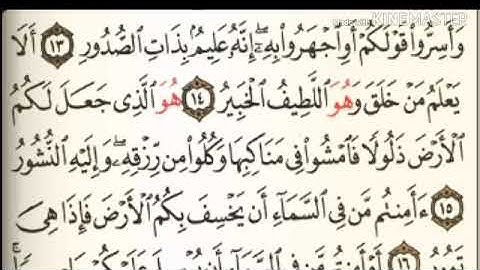 KINEMASTER
وَأَسِرُّوا۟ قَوْلَكُمْ أَوِ ٱجْهَرُوا۟ بِهِۦٓ إِنَّهُۥ عَلِيمٌۢ بِذَاتِ ٱلصُّدُورِ ١٣ أَلَا
يَعْلَمُ مَنْ خَلَقَ وَهُوَ ٱللَّطِيفُ ٱلْخَبِيرُ ١٤ هُوَ ٱلَّذِى جَعَلَ لَكُمُ
ٱلْأَرْضَ ذَلُولًا فَٱمْشُوا۟ فِى مَنَاكِبِهَا وَكُلُوا۟ مِن رِّزْقِهِۦ وَإِلَيْهِ ٱلنُّشُورُ
١٥ ءَأَمِنتُم مَّن فِى ٱلسَّمَآءِ أَن يَخْسِفَ بِكُمُ ٱلْأَرْضَ فَإِذَا هِىَ
تَمُورُ ١٦ أَمْ أَمِنتُم مَّن فِى ٱلسَّمَآءِ أَن يُرْسِلَ عَلَيْكُمْ حَاصِبًا